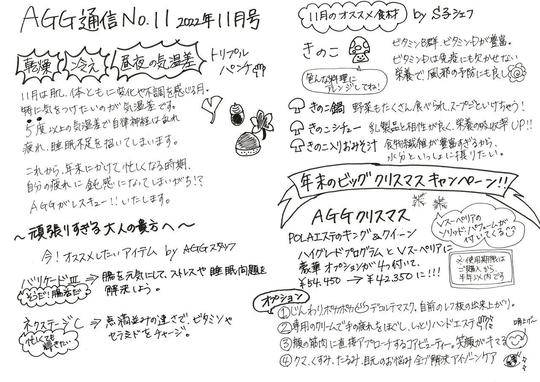 AGG通信 No.11 2022年11月号
乾燥 冷え 昼夜の気温差 トリプルパンチ
11月は肌、体ともに変化や不調を感じる月。
特に気をつけたいのが気温差です。
5度以上の気温差で自律神経は乱れ
疲れ、睡眠不足を招いてしまいます。
これから、年末にかけて忙しくなる時期、
自分の疲れに鈍感になってしまいがち!?
AGGがレスキュー!!いたします。
〜頑張りすぎる大人の貴方へ〜
今!オススメしたいアイテム by AGGスタッフ
バリケードⅢ ⇒ 腸を元気にして、ストレスや睡眠問題を
そうだ!腸活だ 解決しよう。
ネクステージC ⇒ 点滴並みの速さで、ビタミンや
忙しくても輝きたい セラミドをチャージ。
11月のオススメ食材 by S子シェフ
きのこ
ビタミンB群、ビタミンDが豊富。
ビタミンDは免疫にも欠かせない
栄養で風邪の予防にも良し
色んな料理に
アレンジしてね!
きのこ鍋 野菜もたくさん食べられ、スープごといけちゃう!
きのこシチュー 乳製品と相性が良く、栄養の吸収率UP!!
きのこ入りおみそ汁 食物繊維が豊富すぎるから、
水分といっしょに摂りたい。
年末のビッグクリスマスキャンペーン!!
AGGクリスマス
POLAエステのキング&クイーン
ハイグレードプログラムとVスーペリアに
豪華オプションが4つ付いて、
¥54,450 → ¥42,350に!!!
Vスーペリアの
ソリッドパフュームが
付いてくる
※使用期限は
ご購入から
半年以内です
オプション
①じんわりポカポカひらくデコルテマスク。自前のレフ板の出来上がり。
②専用のクリームで手の疲れをほぐし、しっとりハンドエステ
③顔の筋肉に直接アプローチするコアビューティー。笑顔がステキ
④クマ、くすみ、たるみ、目元のお悩み全ブ解決アイゾーンケア